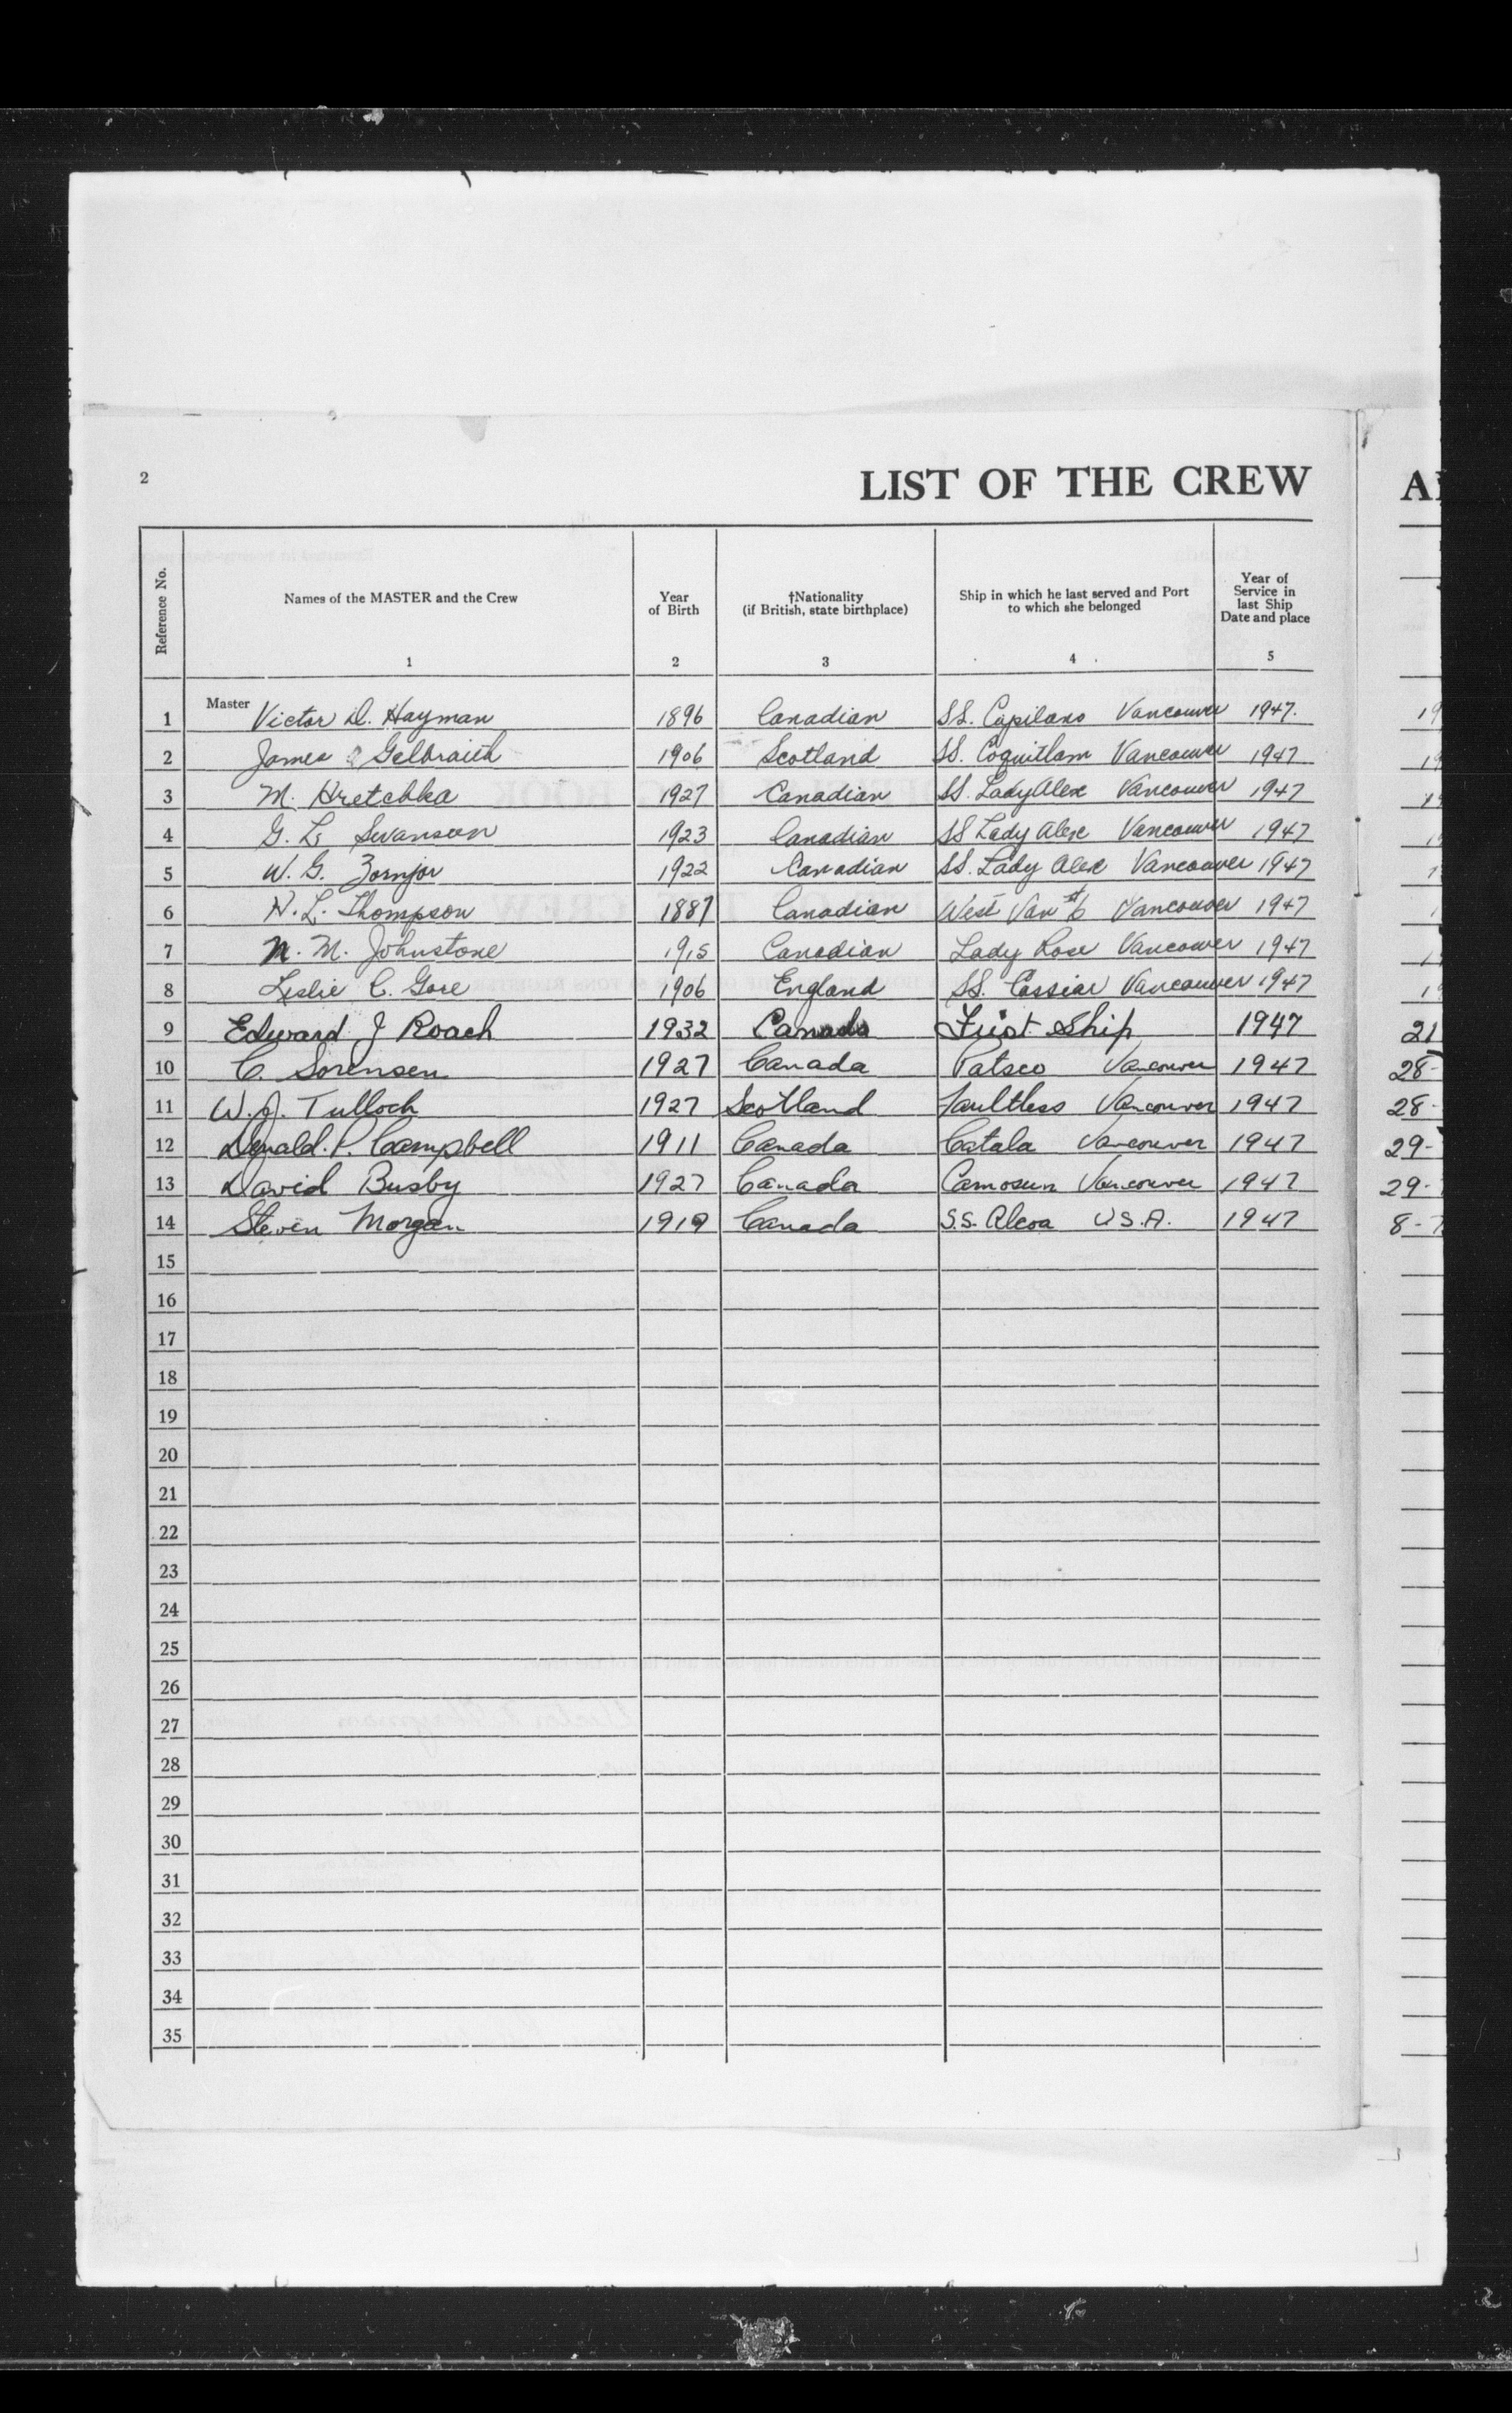 2
LIST OF THE CREW
Reference No.
Names of the MASTER and the Crew
Year of Birth
†Nationality (if British, state birthplace)
Ship in which he last served and Port to which she belonged
Year of Service in last Ship Date and place
1 2 3 4 5
1 Master Victor D. Hayman 1896 Canadian SS. Capilano Vancouver 1947.
2 James Gelbraith 1906 Scotland SS. Coquitlam Vancouver 1947
3 M. Hretchka 1927 Canadian SS. Lady Alex Vancouver 1947
4 G. L. Swanson 1923 Canadian SS Lady Alex Vancouver 1947
5 W. G. 1922 Canadian SS. Lady Alex Vancouver 1947
6 H. L. Thompson 1887 Canadian West Van #6 Vancouver 1947
7 N. M. Johnstone 1915 Canadian Lady Rose Vancouver 1947
8 Leslie C. Gore 1906 England SS. Cassiar Vancouver 1947
9 Edward J Roach 1932 Canada First Ship 1947 21
10 C. Sorensen 1927 Canada Patsco Vancouver 1947 28-
11 W. J. Tulloch 1927 Scotland Faultless Vancouver 1947 28-
12 Donald. P. Campbell 1911 Canada Catala Vancouver 1947 29-
13 David Busby 1927 Canada Camosun Vancouver 1947 29-
14 Steven Morgan 1919 Canada S.S. Alcoa U.S.A. 1947 8-
15
16
17
18
19
20
21
22
23
24
25
26
27
28
29
30
31
32
33
34
35